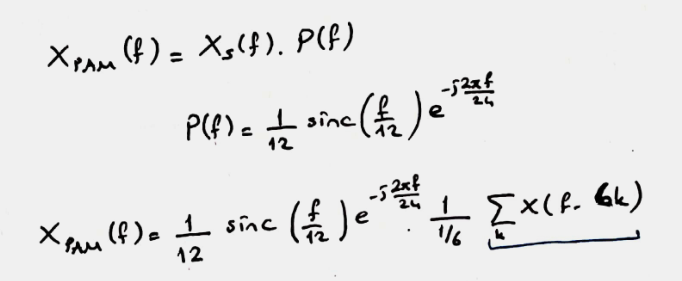 X_PAM (f) = X_s(f). P(f)
P(f) = 1/12 sinc(f/12) e^{-j2πf/24}
X_PAM (f) = 1/12 sinc (f/12) e^{-j2πf/24} . 1/(1/6) Σ_k X(f - 6k)